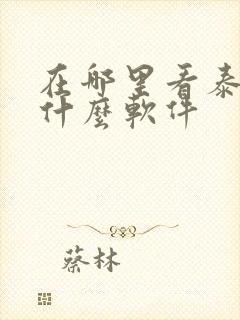 在哪里看泰
什麼軟件
蔡林